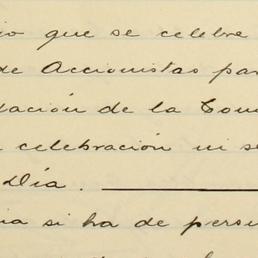 io que se celebre
de Accionistas par
dación de la Com
celebración ni se
Día.
ia si ha de persu